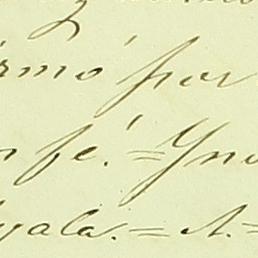 rmó por
fé. = Yno
yala. = A. =